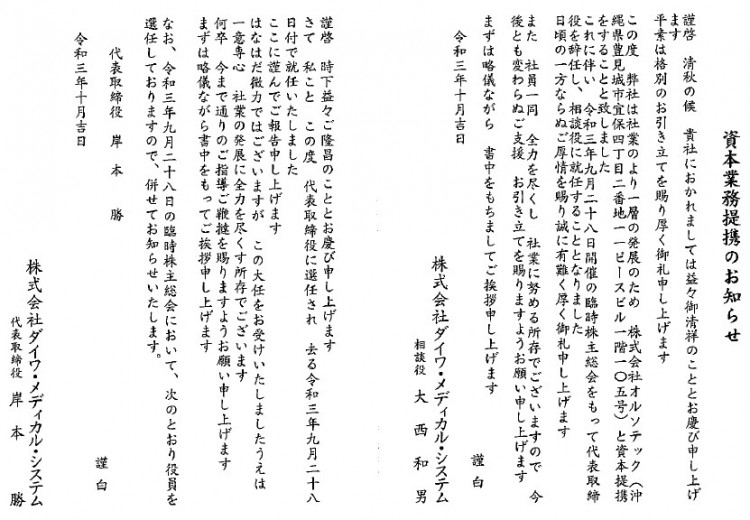 資本業務提携のお知らせ
謹啓　清秋の候　貴社におかれましては益々御清祥のこととお慶び申し上げ
ます
平素は格別のお引き立てを賜り厚く御礼申し上げます
この度　弊社は社業のより一層の発展のため　株式会社オルソテック（沖
縄県豊見城市宜保四丁目二番地一一ピースビル一階一〇五号）と資本提携
をすることと致しました
これに伴い　令和三年九月二十八日開催の臨時株主総会をもって代表取締
役を辞任し、相談役に就任することとなりました
日頃の一方ならぬご厚情を賜り誠に有難く厚く御礼申し上げます
また　社員一同　全力を尽くし　社業に努める所存でございますので　今
後とも変わらぬご支援　お引き立てを賜りますようお願い申し上げます
まずは略儀ながら　書中をもちましてご挨拶申し上げます
謹白
令和三年十月吉日
株式会社ダイワ・メディカル・システム
相談役　大西和男
謹啓　時下益々ご隆昌のこととお慶び申し上げます
さて　私こと　この度　代表取締役に選任され　去る令和三年九月二十八
日付で就任いたしました
ここに謹んでご報告申し上げます
はなはだ微力ではございますが　この大任をお受けいたしましたうえは
一意専心　社業の発展に全力を尽くす所存でございます
何卒　今まで通りのご指導ご鞭撻を賜りますようお願い申し上げます
まずは略儀ながら書中をもってご挨拶申し上げます
謹白
なお、令和三年九月二十八日の臨時株主総会において、次のとおり役員を
選任しておりますので、併せてお知らせいたします。
代表取締役　岸本　勝
令和三年十月吉日
株式会社ダイワ・メディカル・システム
代表取締役　岸本　勝